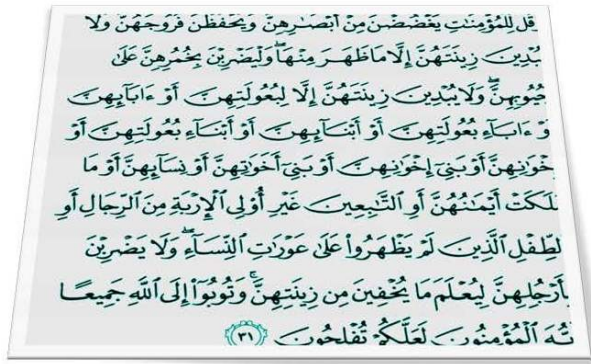 قُل لِّلْمُؤْمِنَٰتِ يَغْضُضْنَ مِنْ أَبْصَٰرِهِنَّ وَيَحْفَظْنَ فُرُوجَهُنَّ وَلَا
يُبْدِينَ زِينَتَهُنَّ إِلَّا مَا ظَهَرَ مِنْهَا ۖ وَلْيَضْرِبْنَ بِخُمُرِهِنَّ عَلَىٰ
جُيُوبِهِنَّ ۖ وَلَا يُبْدِينَ زِينَتَهُنَّ إِلَّا لِبُعُولَتِهِنَّ أَوْ ءَابَآئِهِنَّ
أَوْ ءَابَآءِ بُعُولَتِهِنَّ أَوْ أَبْنَآئِهِنَّ أَوْ أَبْنَآءِ بُعُولَتِهِنَّ أَوْ
إِخْوَٰنِهِنَّ أَوْ بَنِىٓ إِخْوَٰنِهِنَّ أَوْ بَنِىٓ أَخَوَٰتِهِنَّ أَوْ نِسَآئِهِنَّ أَوْ مَا
مَلَكَتْ أَيْمَٰنُهُنَّ أَوِ ٱلتَّٰبِعِينَ غَيْرِ أُو۟لِى ٱلْإِرْبَةِ مِنَ ٱلرِّجَالِ أَوِ
ٱلطِّفْلِ ٱلَّذِينَ لَمْ يَظْهَرُوا۟ عَلَىٰ عَوْرَٰتِ ٱلنِّسَآءِ ۖ وَلَا يَضْرِبْنَ
بِأَرْجُلِهِنَّ لِيُعْلَمَ مَا يُخْفِينَ مِن زِينَتِهِنَّ ۚ وَتُوبُوٓا۟ إِلَى ٱللَّهِ جَمِيعًا
أَيُّهَ ٱلْمُؤْمِنُونَ لَعَلَّكُمْ تُفْلِحُونَ ٣١